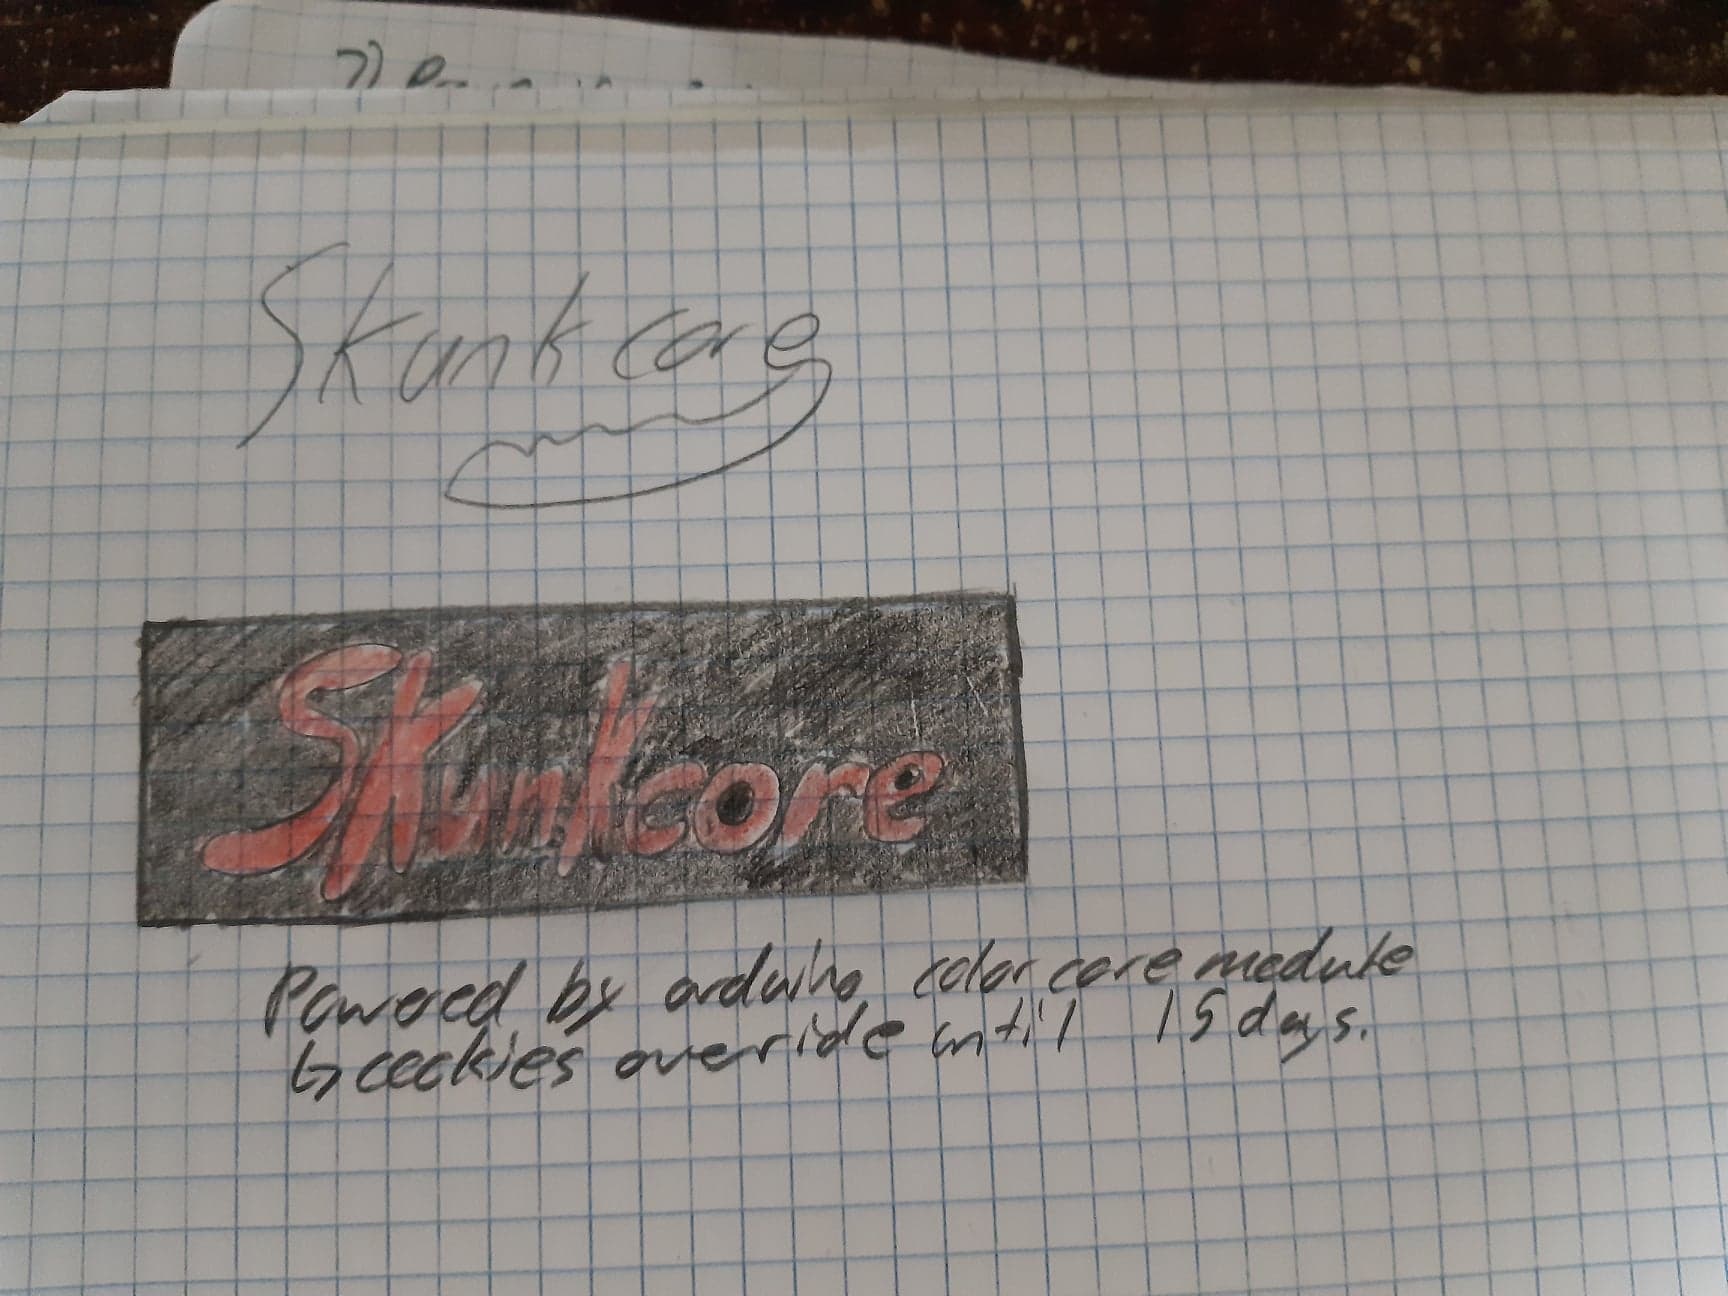 7)
Skunkcore
Skunkcore
Powered by arduino color core module
↳ cockies override until 15 days.